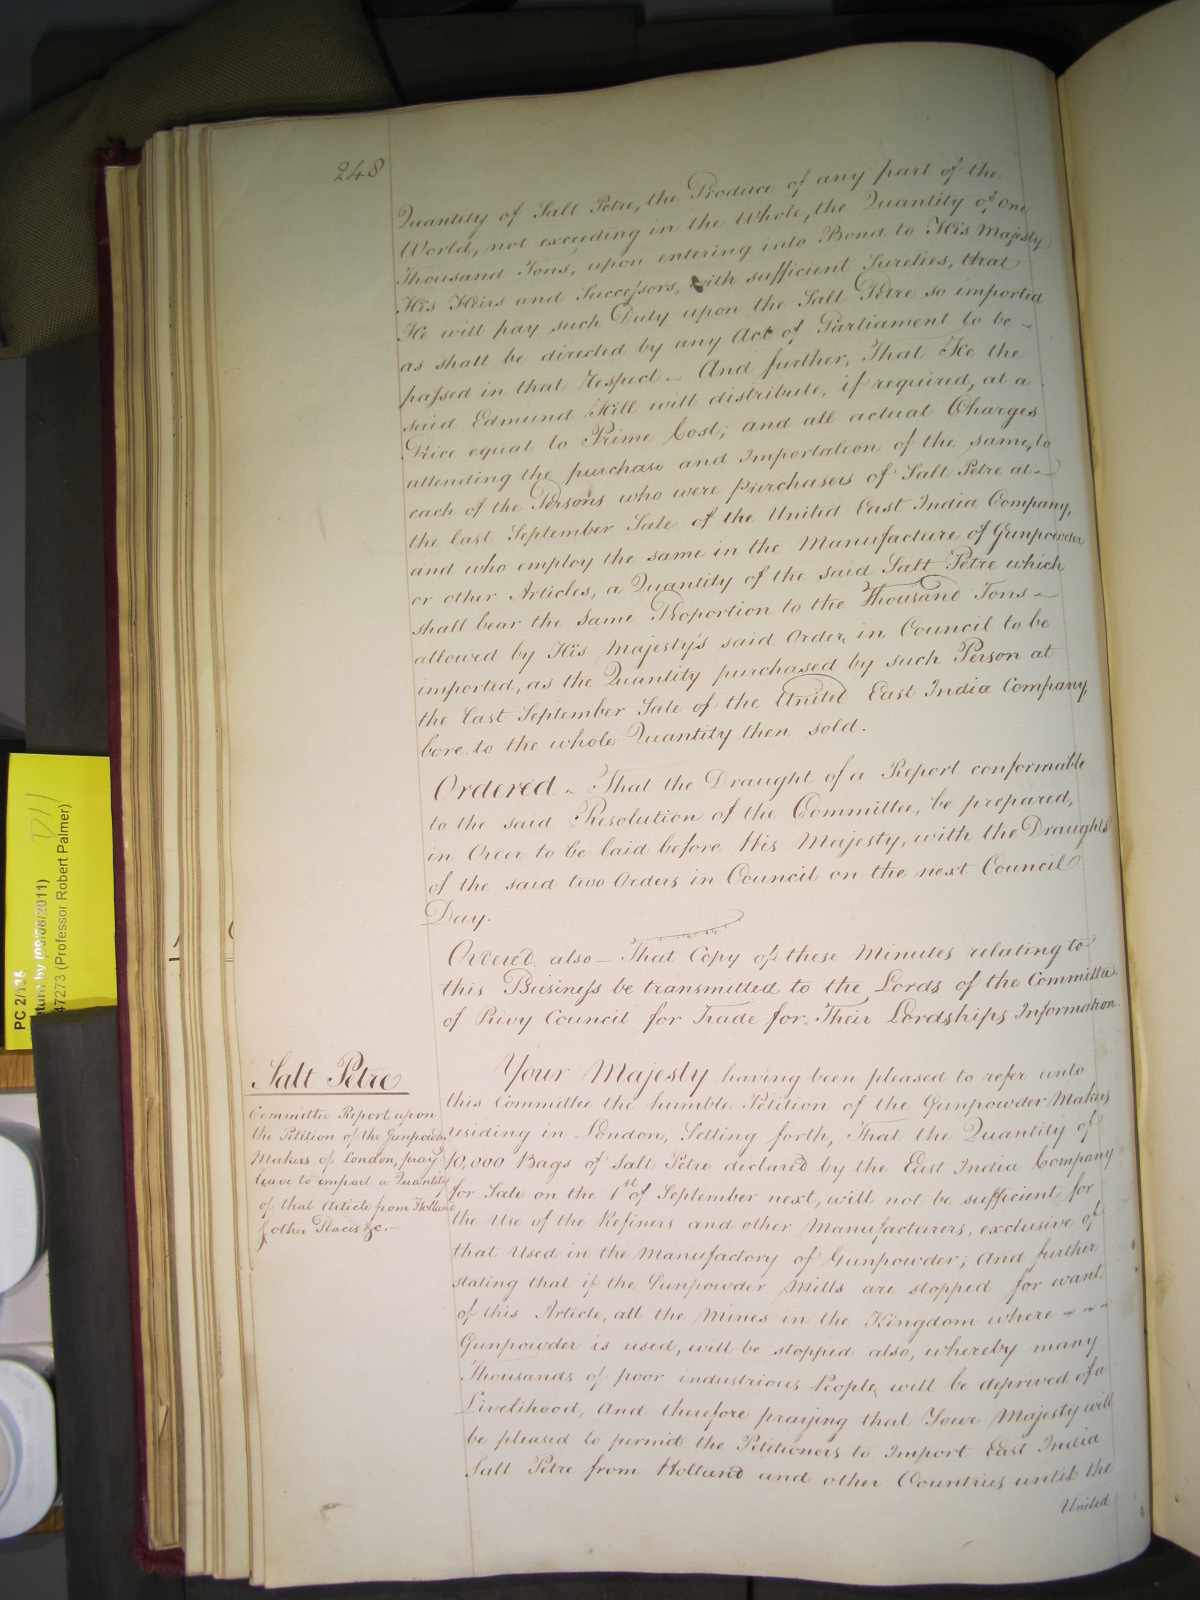 248
Quantity of Salt Petre, the Produce of any part of the
World, not exceeding in the Whole, the Quantity of one
Thousand Tons, upon entering into Bond to His Majesty
His Heirs and Successors, with sufficient Sureties, that
He will pay such Duty upon the Salt Petre so imported
as shall be directed by any Act of Parliament to be ~
passed in that respect. ~ And further, That He the
said Edmund Hill will distribute, if required, at a
Price equal to Prime Cost; and all actual Charges
attending the purchase and Importation of the same, to
each of the Persons who were purchasers of Salt Petre at ~
the last September Sale of the United East India Company,
and who employ the same in the Manufacture of Gunpowder
or other Articles, a Quantity of the said Salt Petre which
shall bear the same Proportion to the Thousand Tons ~
allowed by His Majesty's said Order, in Council to be
imported, as the Quantity purchased by such Person at
the last September Sale of the United East India Company,
bore to the whole Quantity then sold.
Ordered ~ That the Draught of a Report conformable
to the said Resolution of the Committee, be prepared,
in Order to be laid before His Majesty, with the Draughts
of the said two Orders in Council on the next Council
Day.
Ordered also — That Copy of these Minutes relating to
this Business be transmitted to the Lords of the Committee
of Privy Council for Trade for Their Lordships Information.
Salt Petre
Committee Report upon
the Petition of the Gunpowder
Makers of London, pray
leave to import a Quantity
of that Article from Holland
& other Places &c. ~
Your Majesty having been pleased to refer unto
this Committee the humble Petition of the Gunpowder Makers
residing in London, Setting forth, That the Quantity of
10,000 Bags of Salt Petre declared by the East India Company
for Sale on the 1st of September next, will not be sufficient for
the Use of the Refiners and other Manufacturers, exclusive of
that Used in the Manufactory of Gunpowder; And further
stating that if the Gunpowder Mills are stopped for want
of this Article, all the Mines in the Kingdom where ~ ~ ~
Gunpowder is used, will be stopped also, whereby many
Thousands of poor industrious People, will be deprived of a
Livelihood, And therefore praying that Your Majesty will
be pleased to permit the Petitioners to Import East India
Salt Petre from Holland and other Countries until the
United
PC 2/135
by (09/08/2011)
47273 (Professor Robert Palmer)